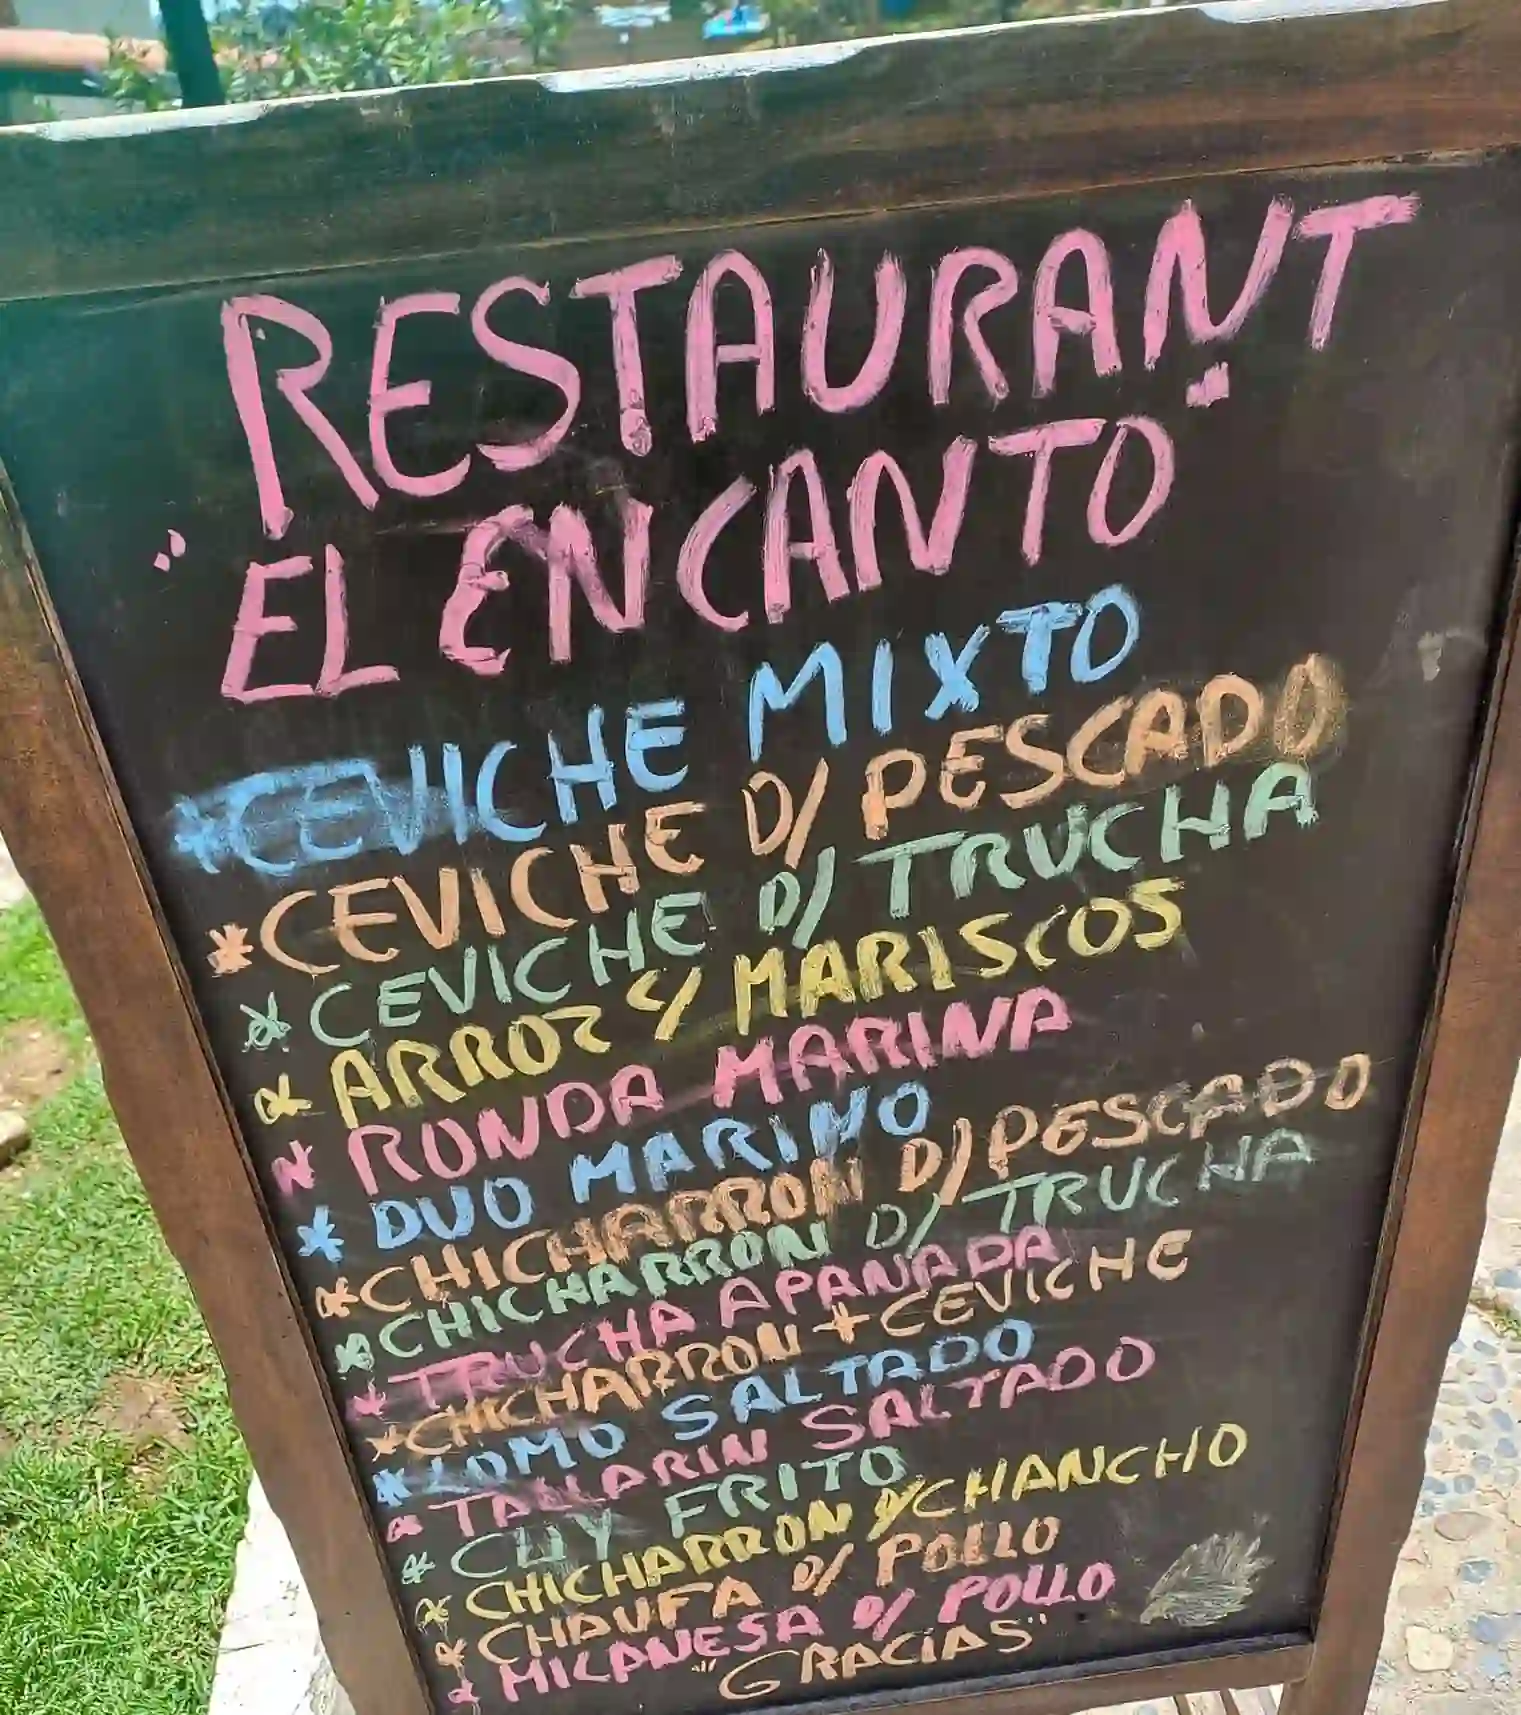 RESTAURANT
"EL ENCANTO"
*CEVICHE MIXTO
*CEVICHE D/ PESCADO
*CEVICHE D/ TRUCHA
*ARROZ C/ MARISCOS
*RONDA MARINA
*DUO MARINO
*CHICHARRON D/ PESCADO
*CHICHARRON D/ TRUCHA
*TRUCHA APANADA
*CHICHARRON + CEVICHE
*LOMO SALTADO
*TALLARIN SALTADO
*CUY FRITO
*CHICHARRON D/CHANCHO
*CHAUFA D/ POLLO
*MILANESA D/ POLLO
"GRACIAS"